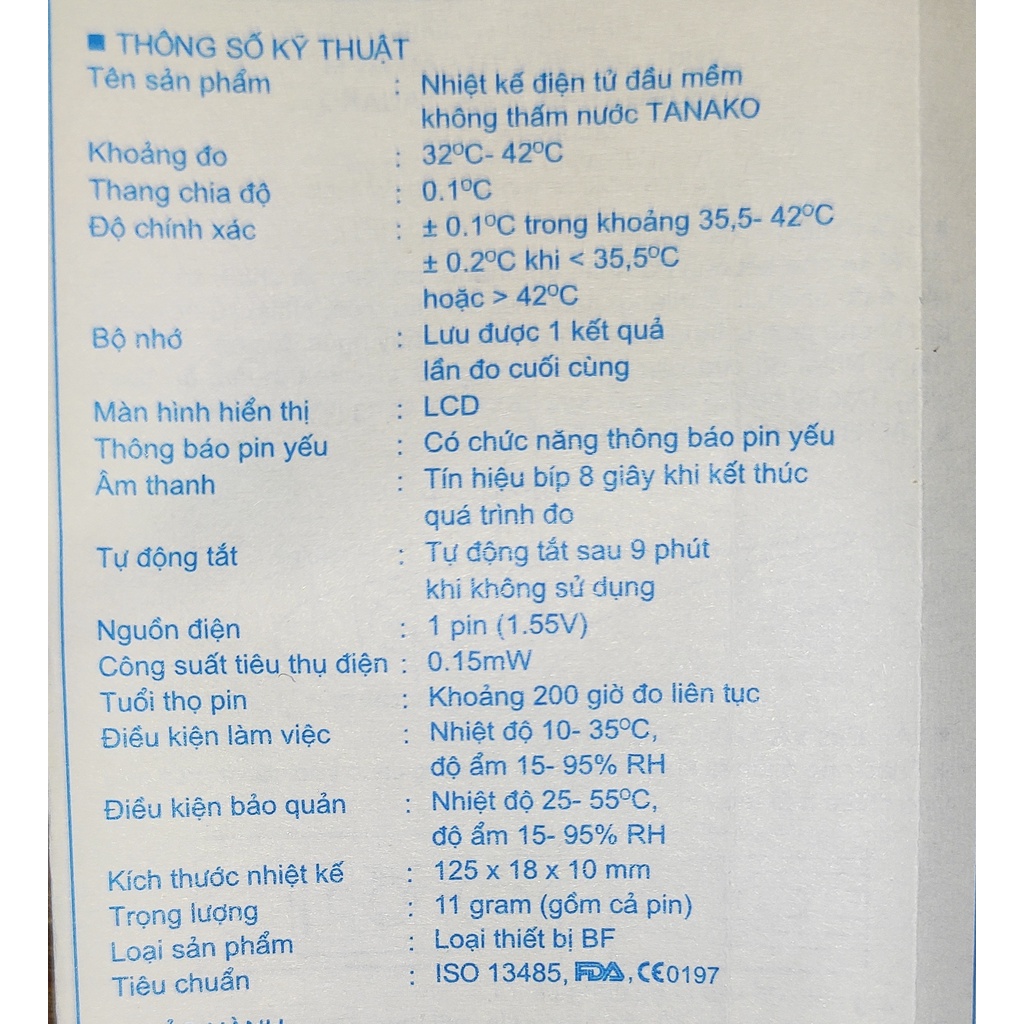 ■ THÔNG SỐ KỸ THUẬT
Tên sản phẩm : Nhiệt kế điện tử đầu mềm
không thấm nước TANAKO
Khoảng đo : 32ºC- 42ºC
Thang chia độ : 0.1ºC
Độ chính xác : ± 0.1ºC trong khoảng 35,5- 42ºC
± 0.2ºC khi < 35,5ºC
hoặc > 42ºC
Bộ nhớ : Lưu được 1 kết quả
lần đo cuối cùng
Màn hình hiển thị : LCD
Thông báo pin yếu : Có chức năng thông báo pin yếu
Âm thanh : Tín hiệu bíp 8 giây khi kết thúc
quá trình đo
Tự động tắt : Tự động tắt sau 9 phút
khi không sử dụng
Nguồn điện : 1 pin (1.55V)
Công suất tiêu thụ điện : 0.15mW
Tuổi thọ pin : Khoảng 200 giờ đo liên tục
Điều kiện làm việc : Nhiệt độ 10- 35ºC,
độ ẩm 15- 95% RH
Điều kiện bảo quản : Nhiệt độ 25- 55ºC,
độ ẩm 15- 95% RH
Kích thước nhiệt kế : 125 x 18 x 10 mm
Trọng lượng : 11 gram (gồm cả pin)
Loại sản phẩm : Loại thiết bị BF
Tiêu chuẩn : ISO 13485, FDA, CE0197